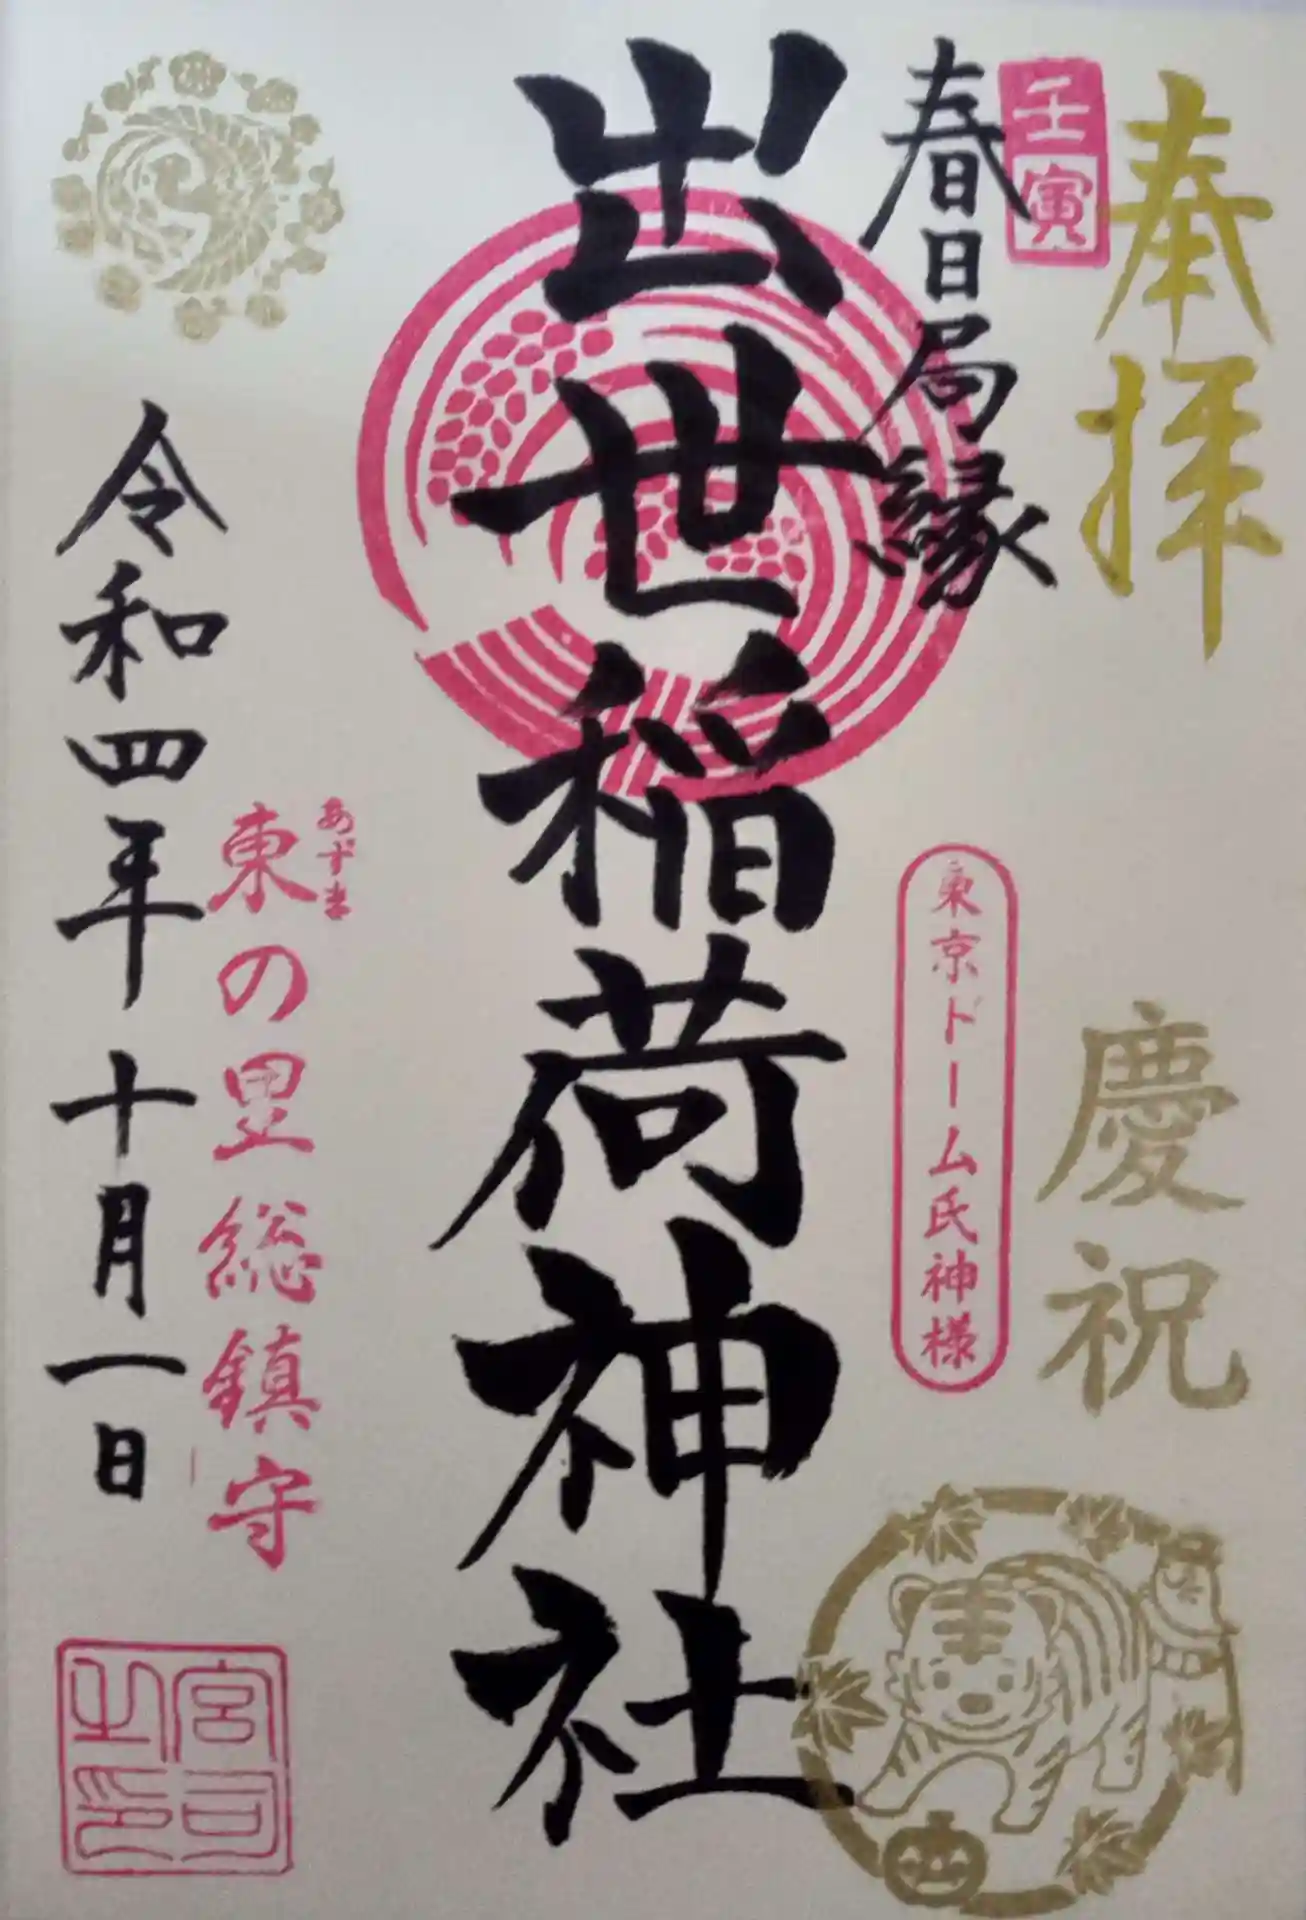 奉拝
慶祝
壬寅
春日局縁
東京ドーム氏神様
出世稲荷神社
あずま
東の里総鎮守
令和四年十月一日
宮司
之印